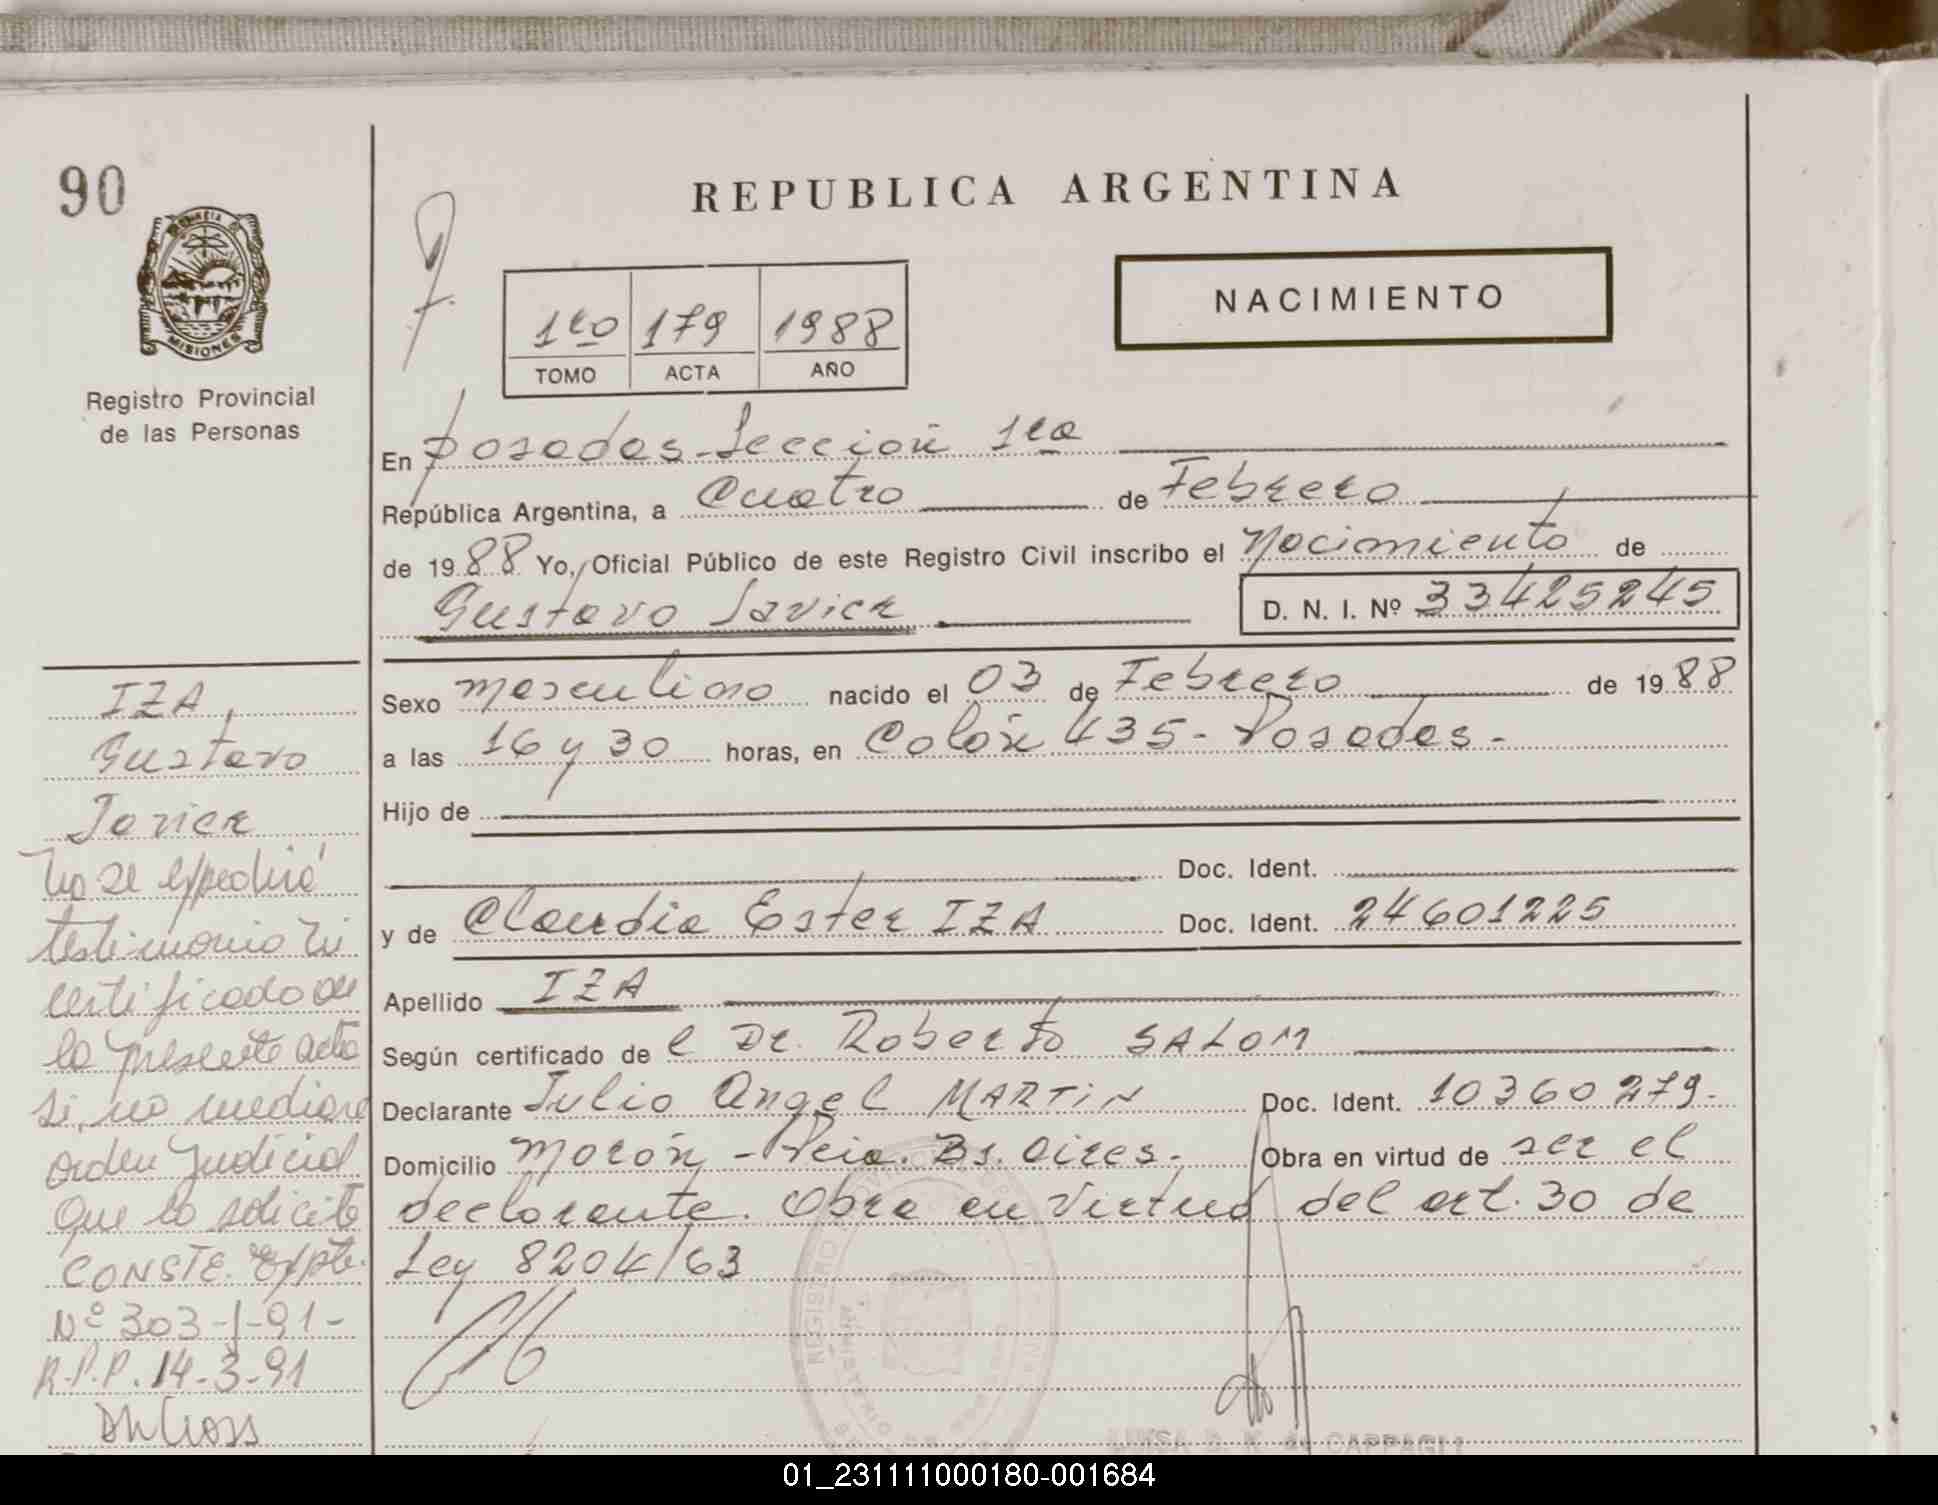 90
REPUBLICA ARGENTINA
MISIONES
Registro Provincial
de las Personas
1ro 179 1988
TOMO ACTA AÑO
NACIMIENTO
En Posadas - Sección 1ra
República Argentina, a Cuatro de Febrero
de 1988 Yo, Oficial Público de este Registro Civil inscribo el Nacimiento de
Gustavo Javier D. N. I. Nº 33425245
Sexo masculino nacido el 03 de Febrero de 1988
a las 16 y 30 horas, en Colón 435 - Posadas -
Hijo de
Doc. Ident.
y de Claudia Ester IZA Doc. Ident. 24601225
Apellido IZA
Según certificado de l Dr. Roberto SALOM
Declarante Julio Angel MARTIN Doc. Ident. 10360279.
Domicilio Morón - Pcia. Bs. Aires. Obra en virtud de ser el
declarante. Obra en virtud del art. 30 de
Ley 8204/63
IZA
Gustavo
Javier
No se expedirá
testimonio ni
certificado de
la presente acta
si no mediare
orden judicial
que lo solicite
CONSTE. Expte.
Nº 303-I-91-
R.P.P. 14-3-91
REGISTRO
LUISA de CAPPAGLI
01_231111000180-001684